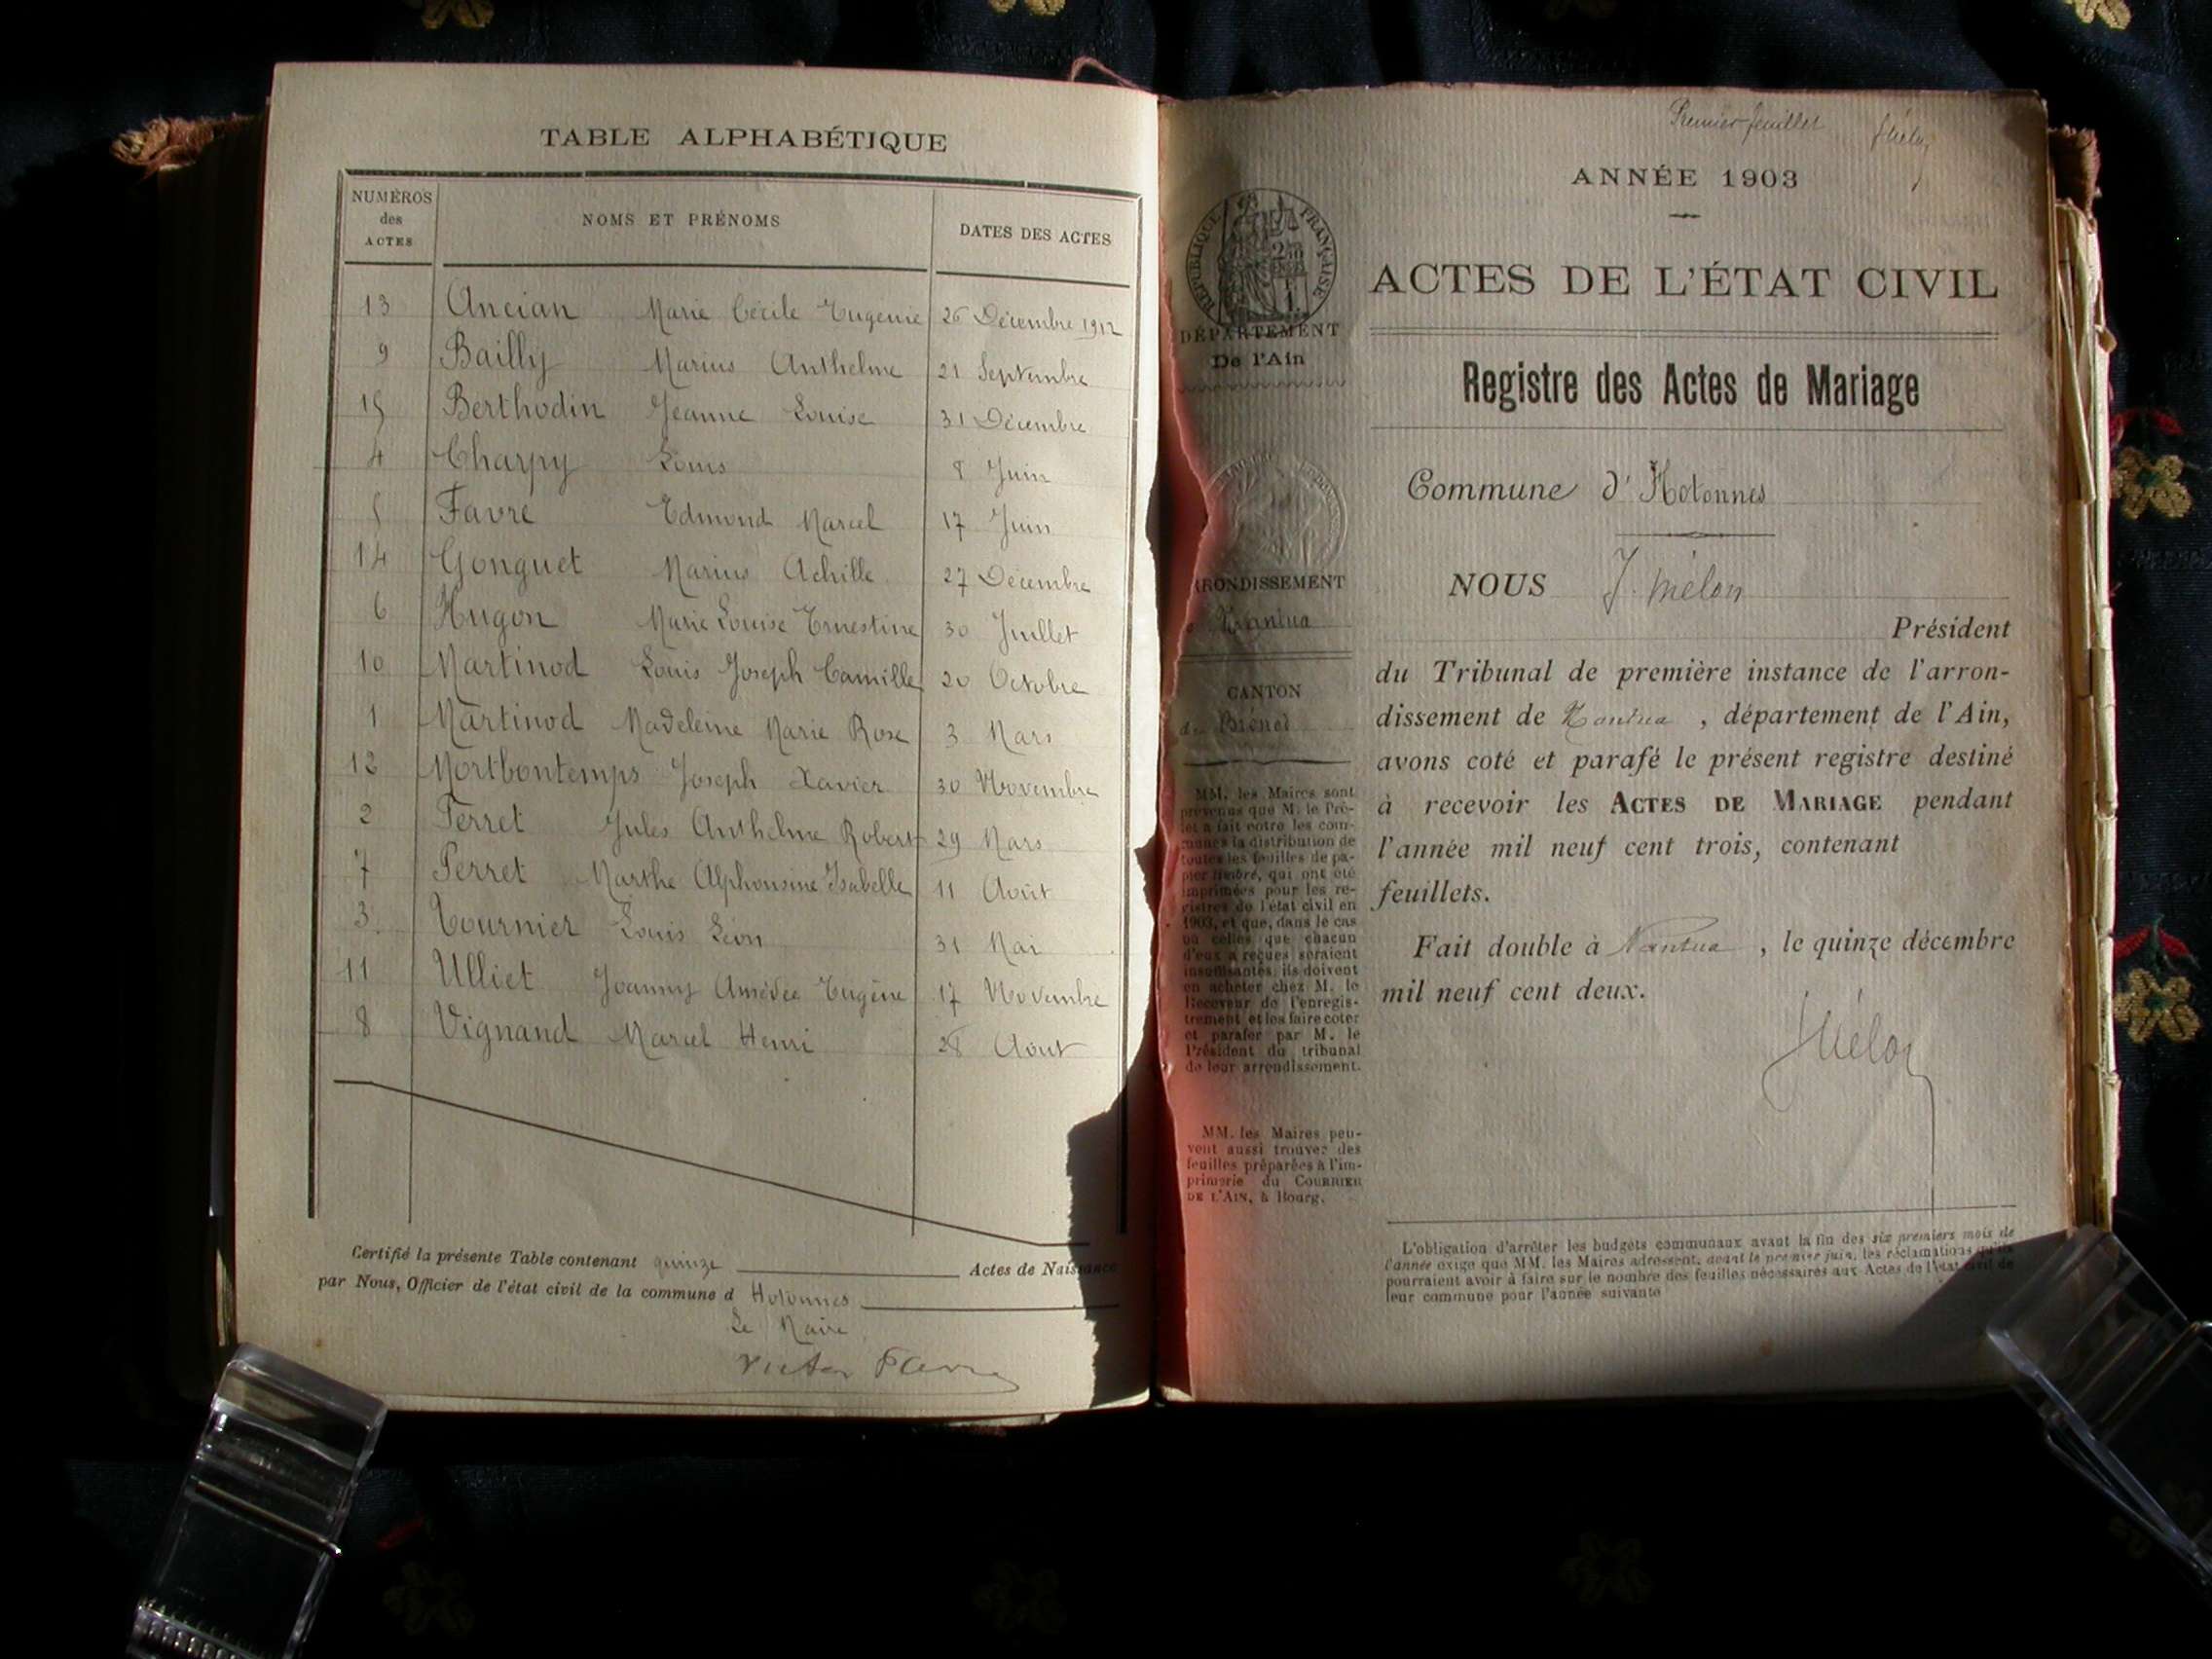 TABLE ALPHABÉTIQUE
NUMÉROS des ACTES NOMS ET PRÉNOMS DATES DES ACTES
13 Ancian Marie Cécile Eugénie 26 Décembre 1912
9 Bailly Marius Anthelme 21 Septembre
15 Berthodin Jeanne Louise 31 Décembre
4 Charpy Louis 8 Juin
5 Favre Edmond Marcel 17 Juin
14 Gonguet Marius Achille 27 Décembre
6 Hugon Marie Louise Ernestine 30 Juillet
10 Martinod Louis Joseph Camille 20 Octobre
1 Martinod Madeleine Marie Rose 3 Mars
12 Mortbontemps Joseph Xavier 30 Novembre
2 Perret Jules Anthelme Robert 29 Mars
7 Perret Marthe Alphonsine Isabelle 11 Août
3 Tournier Louis Léon 31 Mai
11 Ulliet Joanny Amédée Eugène 17 Novembre
8 Vignand Marcel Henri 28 Août
Certifié la présente Table contenant quinze Actes de Naissance
par Nous, Officier de l'état civil de la commune d Hotonnes
Le Maire
Victor Favre
Premier feuillet
ANNÉE 1903
ACTES DE L'ÉTAT CIVIL
Registre des Actes de Mariage
Commune d'Hotonnes
NOUS J. Mélon
Président
du Tribunal de première instance de l'arron-
dissement de Nantua, département de l'Ain,
avons coté et parafé le présent registre destiné
à recevoir les ACTES DE MARIAGE pendant
l'année mil neuf cent trois, contenant
feuillets.
Fait double à Nantua, le quinze décembre
mil neuf cent deux.
L'obligation d'arrêter les budgets communaux avant la fin des six premiers mois de
l'année exige que MM. les Maires adressent, avant le premier juin, les réclamations qu'ils
pourraient avoir à faire sur le nombre des feuilles nécessaires aux Actes de l'état civil de
leur commune pour l'année suivante
RÉPUBLIQUE FRANÇAISE
DÉPARTEMENT
De l'Ain
ARRONDISSEMENT
Nantua
CANTON
de Brénod
MM. les Maires sont
prévenus que M. le Pré-
fet a fait entre les com-
munes la distribution de
toutes les feuilles de pa-
pier timbré, qui ont été
imprimées pour les re-
gistres de l'état civil en
1903, et que, dans le cas
où celles que chacun
d'eux a reçues seraient
insuffisantes, ils doivent
en acheter chez M. le
Receveur de l'enregis-
trement et les faire coter
et parafer par M. le
Président du tribunal
de leur arrondissement.
MM. les Maires peu-
vent aussi trouver des
feuilles préparées à l'im-
primerie du COURRIER
DE L'AIN, à Bourg.